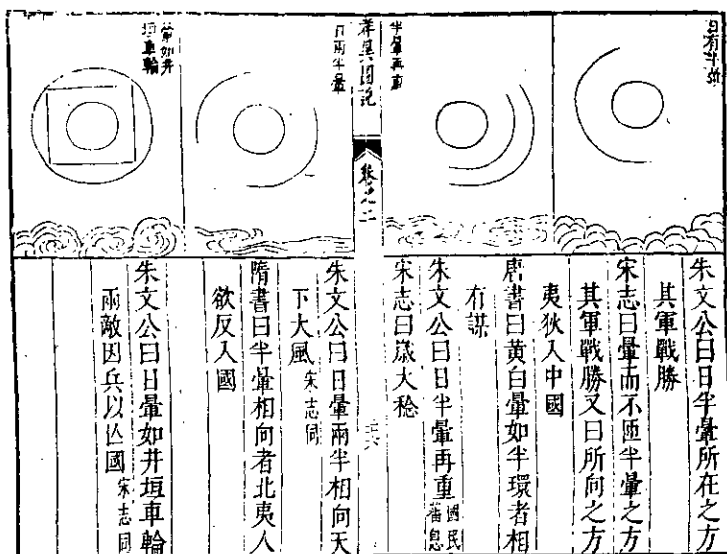 日有半暈
朱文公曰日半暈所在之方
其軍戰勝
宋志曰暈而不匝半暈之方
其軍戰勝又曰所向之方
夷狄入中國
唐書曰黃白暈如半環者相
有謀
半暈再重
朱文公曰日半暈再重 國民蕃息
宋志曰歲大稔
祥異圖說
卷之二
日兩半暈
朱文公曰日暈兩半相向天
下大風 宋志同
隋書曰半暈相向者北夷人
欲反入國
暈如井垣車輪
朱文公曰日暈如井垣車輪
兩敵因兵以亾國 宋志同